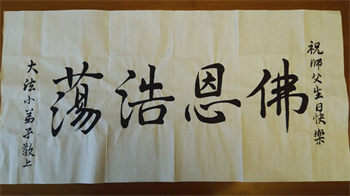 祝师父生日快樂
佛恩浩蕩
大法小弟子敬上